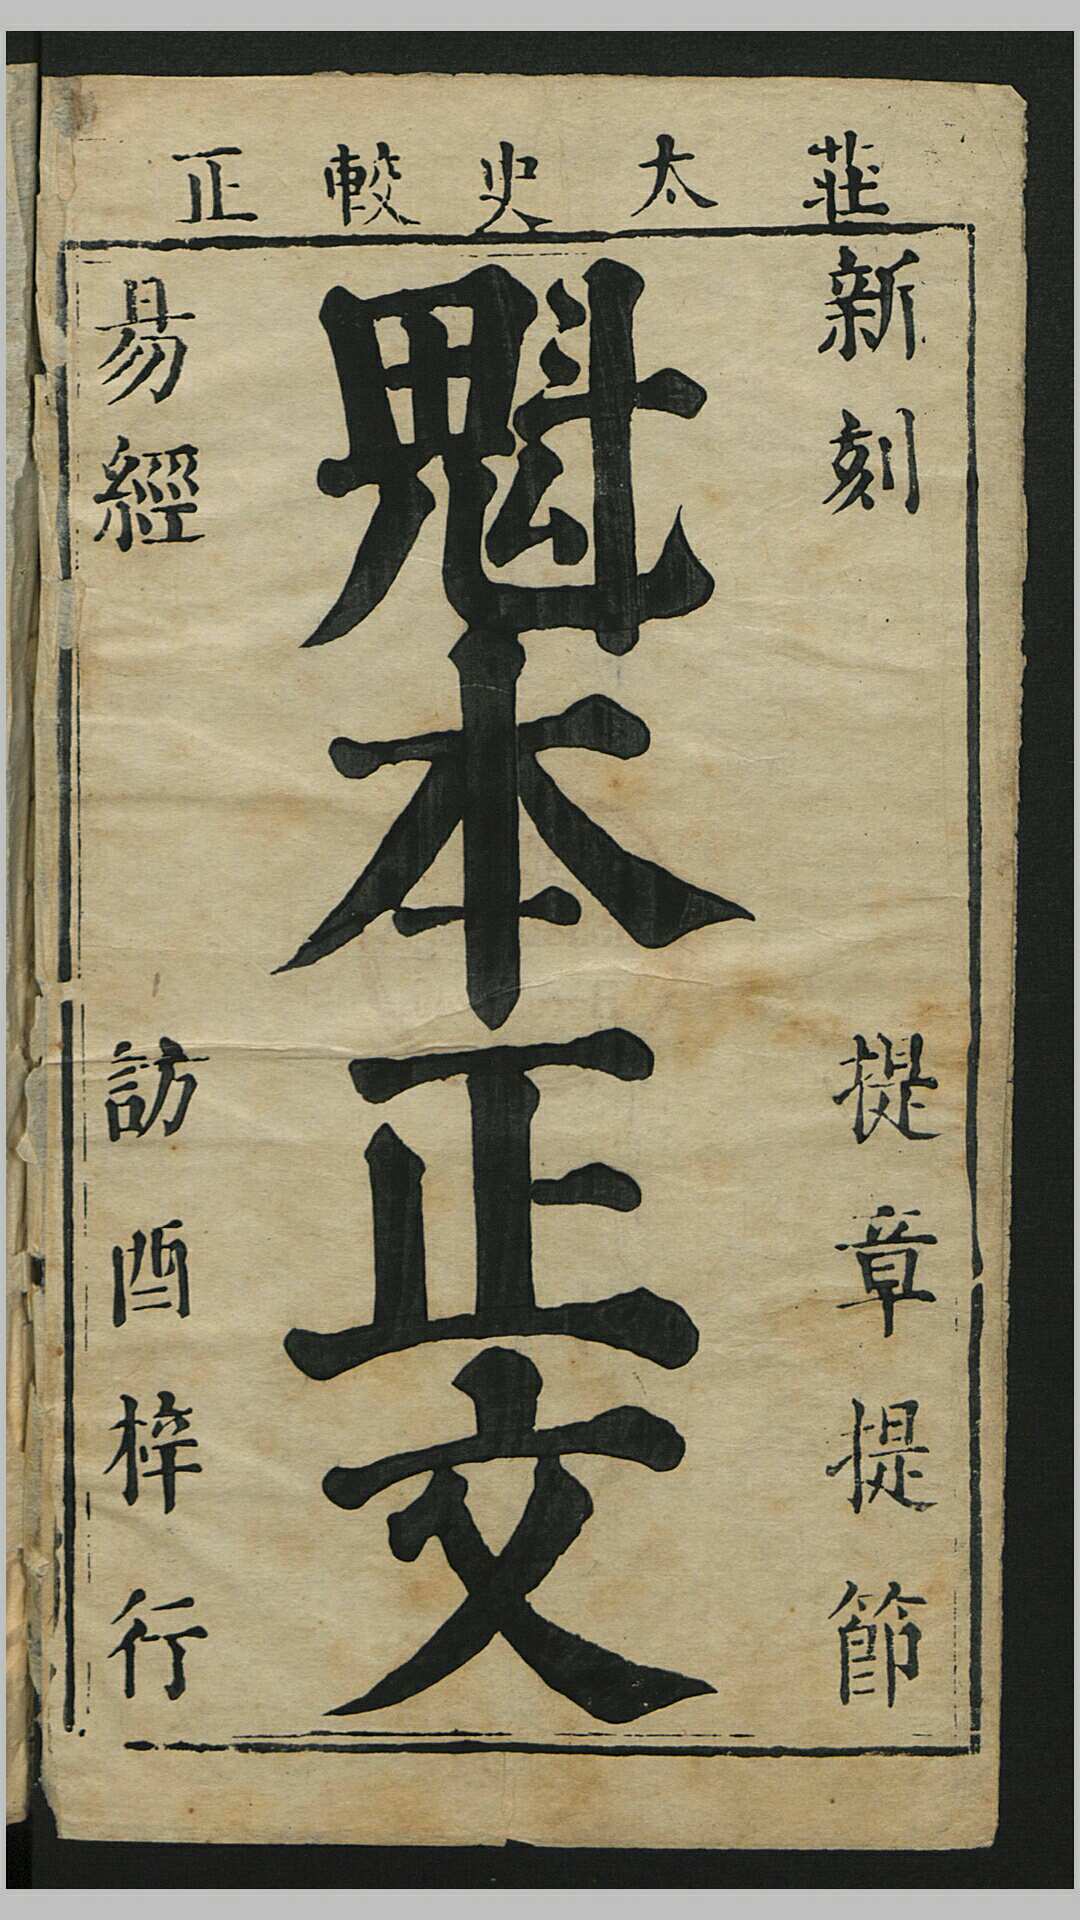 莊太史較正
新刻 提章提節
魁本正文
易經 訪酉梓行